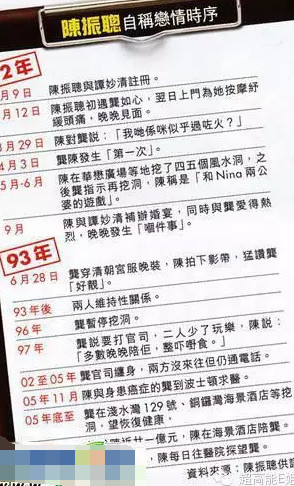 陳振聰自稱戀情時序
2年
月9日 陳振聰與譚妙清註冊。
月12日 陳振聰初遇龔如心，翌日上門為她按摩紓
緩頭痛，晚晚見面。
月29日 陳對龔說：「我哋係咪似乎過咗火？」
月3日 龔陳發生「第一次」。
5月-6月 陳在華懋廣場等地挖了四五個風水洞，之
後龔指示再挖洞，陳稱是「和Nina兩公
婆的遊戲」。
9月 陳與譚妙清補辦婚宴，同時與龔愛得熱
烈，晚晚發生「嗰件事」。
93年
6月28日 龔穿清朝宮服晚裝，陳拍下影帶，猛讚龔
「好靚」。
93年後 兩人維持性關係。
96年 龔暫停挖洞。
97年 龔說要打官司，二人少了玩樂，陳說：
「多數晚晚陪佢，整吓嘢食。」
02至05年 龔官司纏身，兩方沒來往但仍通電話。
05年11月 陳與身患癌症的龔到波士頓求醫。
05年底至 龔在淺水灣129號、銅鑼灣海景酒店等挖
洞，望恢復健康，
近廿一億元，陳在海景酒店陪龔。
，陳每日往醫院探望龔。
資料來源：陳振聰供
超高能E姐